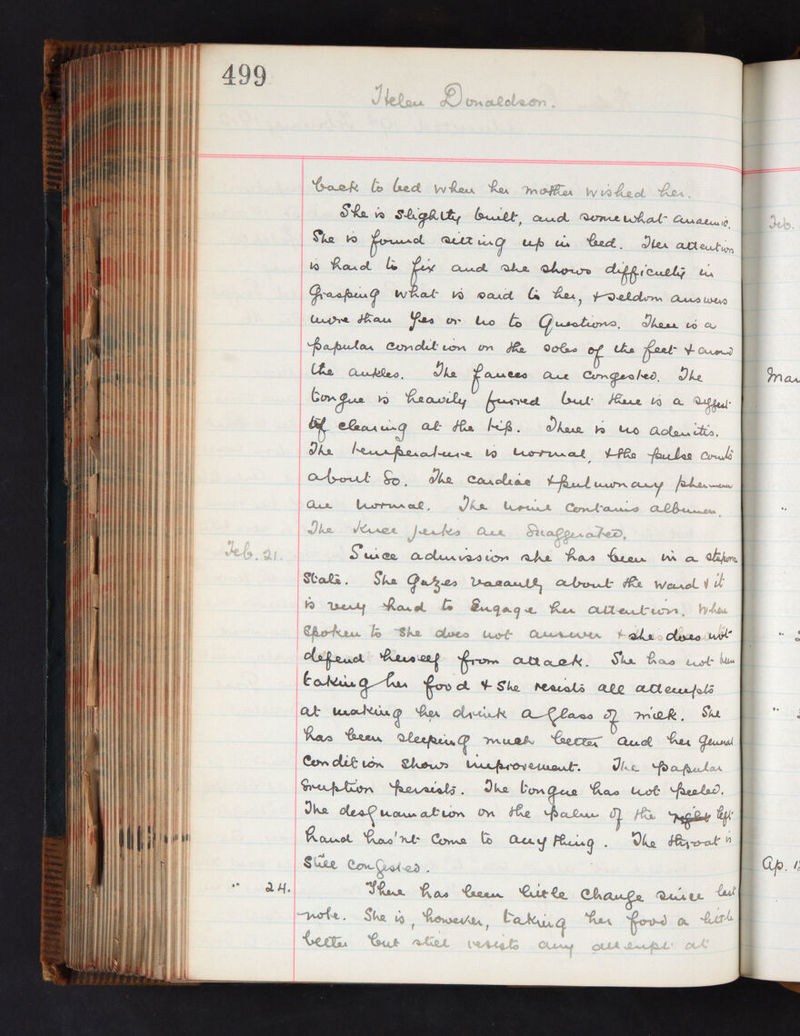 499
Helen Donaldson.
back to bed when her mother wished her.
She is slightly built, and somewhat anaemic.
She is found sitting up in bed. Her attention
is hard to fix and she shows difficulty in
grasping what is said to her, & seldom answers
more than yes or no to questions. There is a
papular condition on the soles of the feet & around
the ankles. The fauces are congested. The
tongue is heavily furred but there is a
of clearing at the tip. There is no adenitis.
The temperature is normal, & the pulse counts
about 80. The cardiac & pulmonary
are normal. The urine contains albumen.
The knee jerks are exaggerated.
Feb. 21. Since admission she has been in a
state. She gazes vacantly about the ward & it
is very hard to engage her attention. When
spoken to she does not answer & she does not
defend herself from attack. She has not been
taking her food & she resists all attempts
at making her drink a glass of milk. She
has been sleeping much better and her general
condition shows improvement. The papular
eruption persists. The tongue has not peeled.
The desquamation on the palm of the right left
hand has'nt come to anything. The throat is
still congested.
" 24. There has been little change since last
note. She is, however, taking her food a little
better but still resists any attempt at
Feb.
Mar
"
"
"
Ap. 1